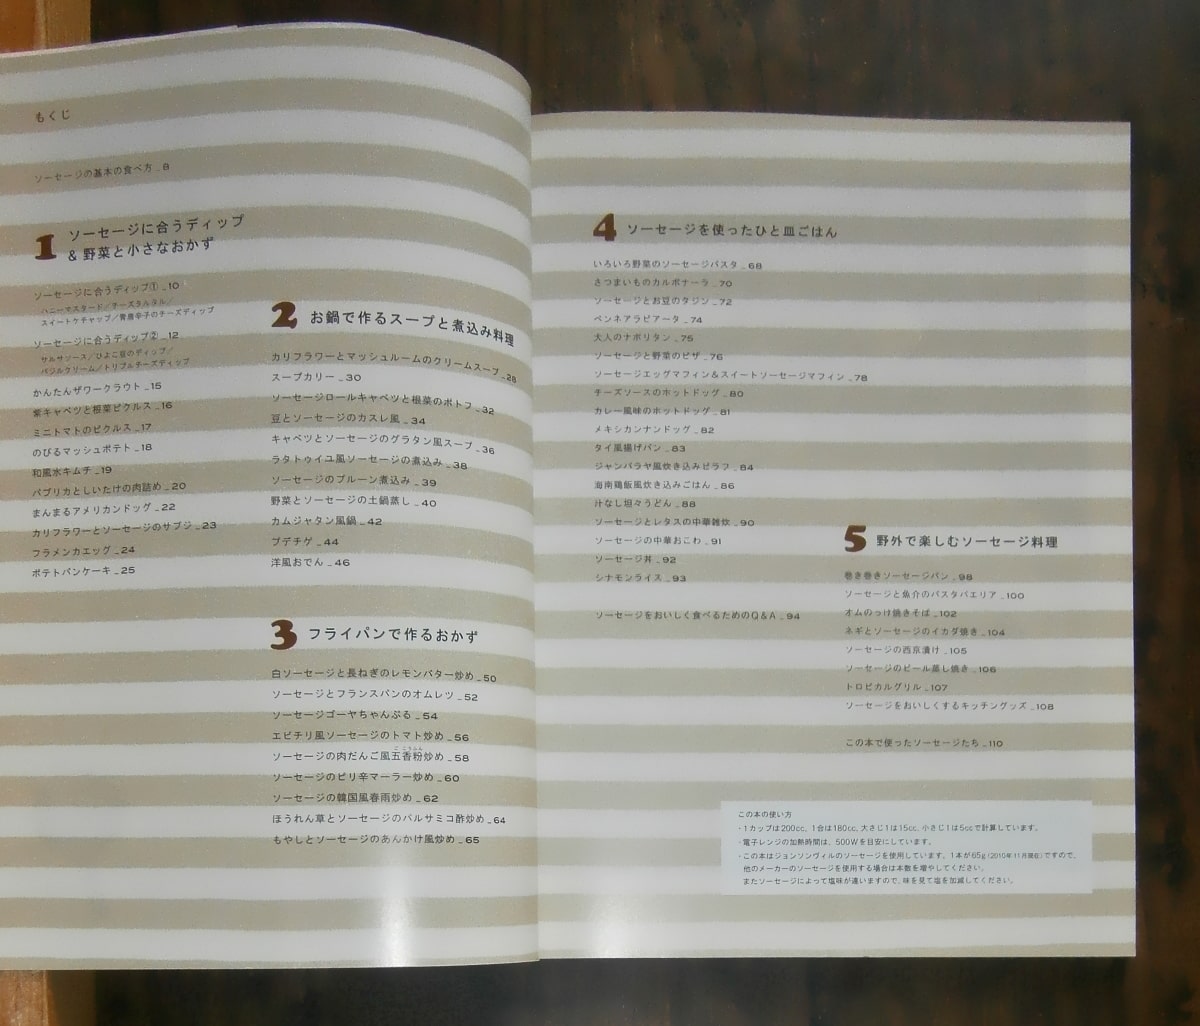 もくじ
ソーセージの基本の食べ方_8
1 ソーセージに合うディップ
&野菜と小さなおかず
ソーセージに合うディップ①_10
ハニーマスタード/チーズタルタル/
スイートケチャップ/青唐辛子のチーズディップ
ソーセージに合うディップ②_12
サルサソース/ひよこ豆のディップ/
バジルクリーム/トリプルチーズディップ
かんたんザワークラウト_15
紫キャベツと根菜ピクルス_16
ミニトマトのピクルス_17
のびるマッシュポテト_18
和風水キムチ_19
パプリカとしいたけの肉詰め_20
まんまるアメリカンドッグ_22
カリフラワーとソーセージのサブジ_23
フラメンカエッグ_24
ポテトパンケーキ_25
2 お鍋で作るスープと煮込み料理
カリフラワーとマッシュルームのクリームスープ_28
スープカリー_30
ソーセージロールキャベツと根菜のポトフ_32
豆とソーセージのカスレ風_34
キャベツとソーセージのグラタン風スープ_36
ラタトゥイユ風ソーセージの煮込み_38
ソーセージのプルーン煮込み_39
野菜とソーセージの土鍋蒸し_40
カムジャタン風鍋_42
プデチゲ_44
洋風おでん_46
3 フライパンで作るおかず
白ソーセージと長ねぎのレモンバター炒め_50
ソーセージとフランスパンのオムレツ_52
ソーセージゴーヤちゃんぷる_54
エビチリ風ソーセージのトマト炒め_56
ソーセージの肉だんご風五香粉炒め_58
ソーセージのピリ辛マーラー炒め_60
ソーセージの韓国風春雨炒め_62
ほうれん草とソーセージのバルサミコ酢炒め_64
もやしとソーセージのあんかけ風炒め_65
4 ソーセージを使ったひと皿ごはん
いろいろ野菜のソーセージパスタ_68
さつまいものカルボナーラ_70
ソーセージとお豆のタジン_72
ペンネアラビアータ_74
大人のナポリタン_75
ソーセージと野菜のピザ_76
ソーセージエッグマフィン&スイートソーセージマフィン_78
チーズソースのホットドッグ_80
カレー風味のホットドッグ_81
メキシカンナンドッグ_82
タイ風揚げパン_83
ジャンバラヤ風炊き込みピラフ_84
海南鶏飯風炊き込みごはん_86
汁なし坦々うどん_88
ソーセージとレタスの中華雑炊_90
ソーセージの中華おこわ_91
ソーセージ丼_92
シナモンライス_93
ソーセージをおいしく食べるためのQ&A_94
5 野外で楽しむソーセージ料理
巻き巻きソーセージパン_98
ソーセージと魚介のパスタパエリア_100
オムのっけ焼きそば_102
ネギとソーセージのイカダ焼き_104
ソーセージの西京漬け_105
ソーセージのビール蒸し焼き_106
トロピカルグリル_107
ソーセージをおいしくするキッチングッズ_108
この本で使ったソーセージたち_110
この本の使い方
・1カップは200cc、1合は180cc、大さじ1は15cc、小さじ1は5ccで計算しています。
・電子レンジの加熱時間は、500Wを目安にしています。
・この本はジョンソンヴィルのソーセージを使用しています。1本が65g(2010年11月現在)ですので、
他のメーカーのソーセージを使用する場合は本数を増やしてください。
またソーセージによって塩味が違いますので、味を見て塩を加減してください。